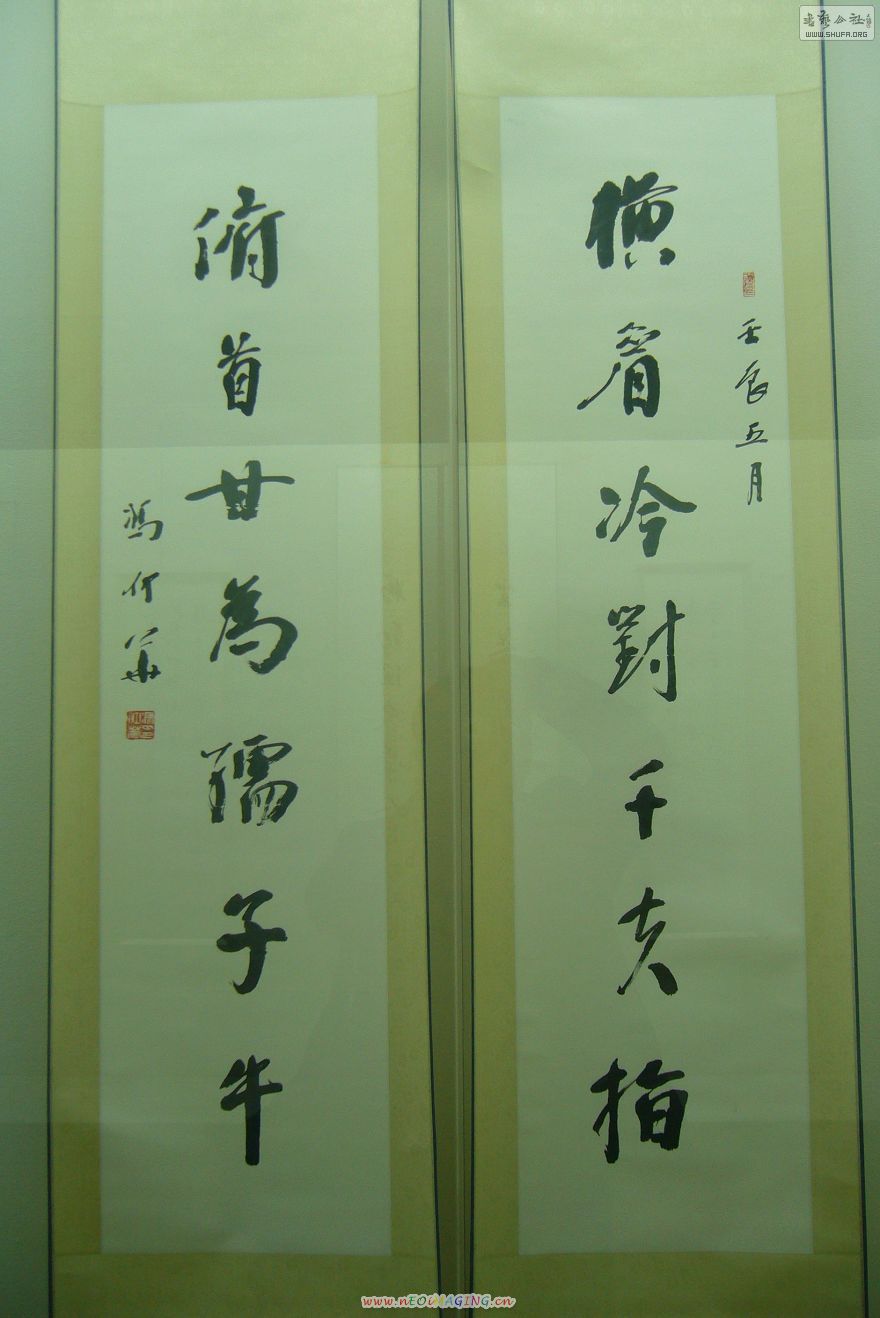 書藝公社
WWW.SHUFA.ORG
壬辰五月
橫眉冷對千夫指
俯首甘為孺子牛
馮 華
www.nEOiMAGING.cn